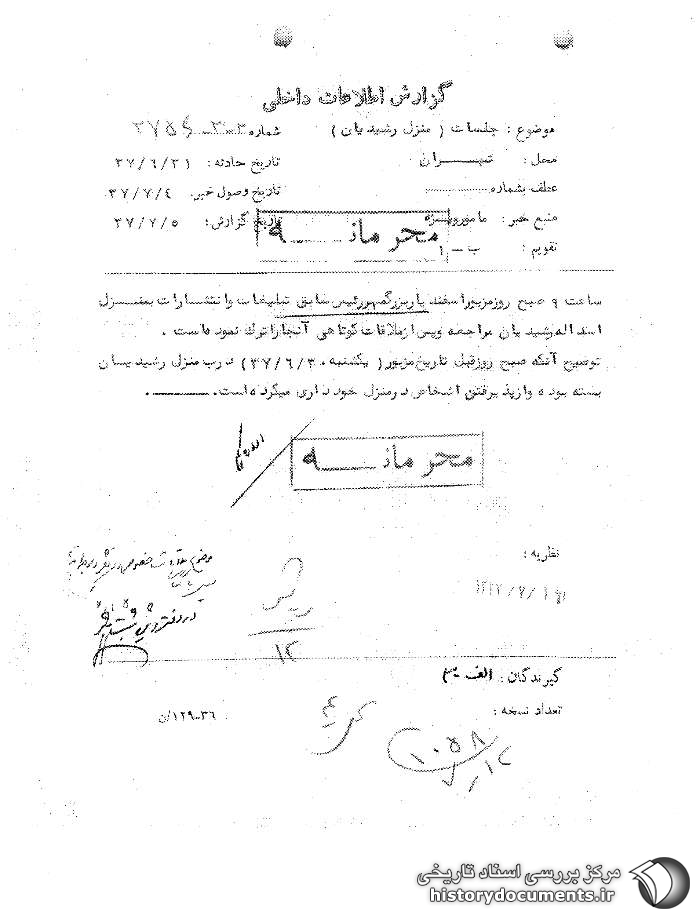 گزارش اطلاعات داخلی
موضوع : جلسات ( منزل رشیدیان )
شماره
محل : تهـــران
تاریخ حادثه : ۳۷/۶/۳۱
عطف بشماره
تاریخ وصول خبر : ۳۷/۷/۴
منبع خبر : مامورویژه
تاریخ گزارش : ۳۷/۷/۵
محرمانـــه
تقویم : ب - ۱
ساعت ۹ صبح روزمزبور اسفندیاربزرگمهررئیس سابق تبلیغات وانتشارات بمنـــزل
اسداله رشیدیان مراجعه وپس ازملاقات کوتاهی آنجاراترك نموده است .
توضیح آنکه صبح روزقبل تاریخ مزبور ( یکشنبه ۳۷/۶/۳۰ ) درب منزل رشیدیــان
بسته بوده وازپذیرفتن اشخاص درمنزل خودداری میکرده است .
محرمانـــه
نظریه :
در دفتر
گیرندگان : الف - ۳
تعداد نسخه :
۱۲۹-۳۶/ن
۱۰۵۸
مرکز بررسی اسناد تاریخی
historydocuments.ir